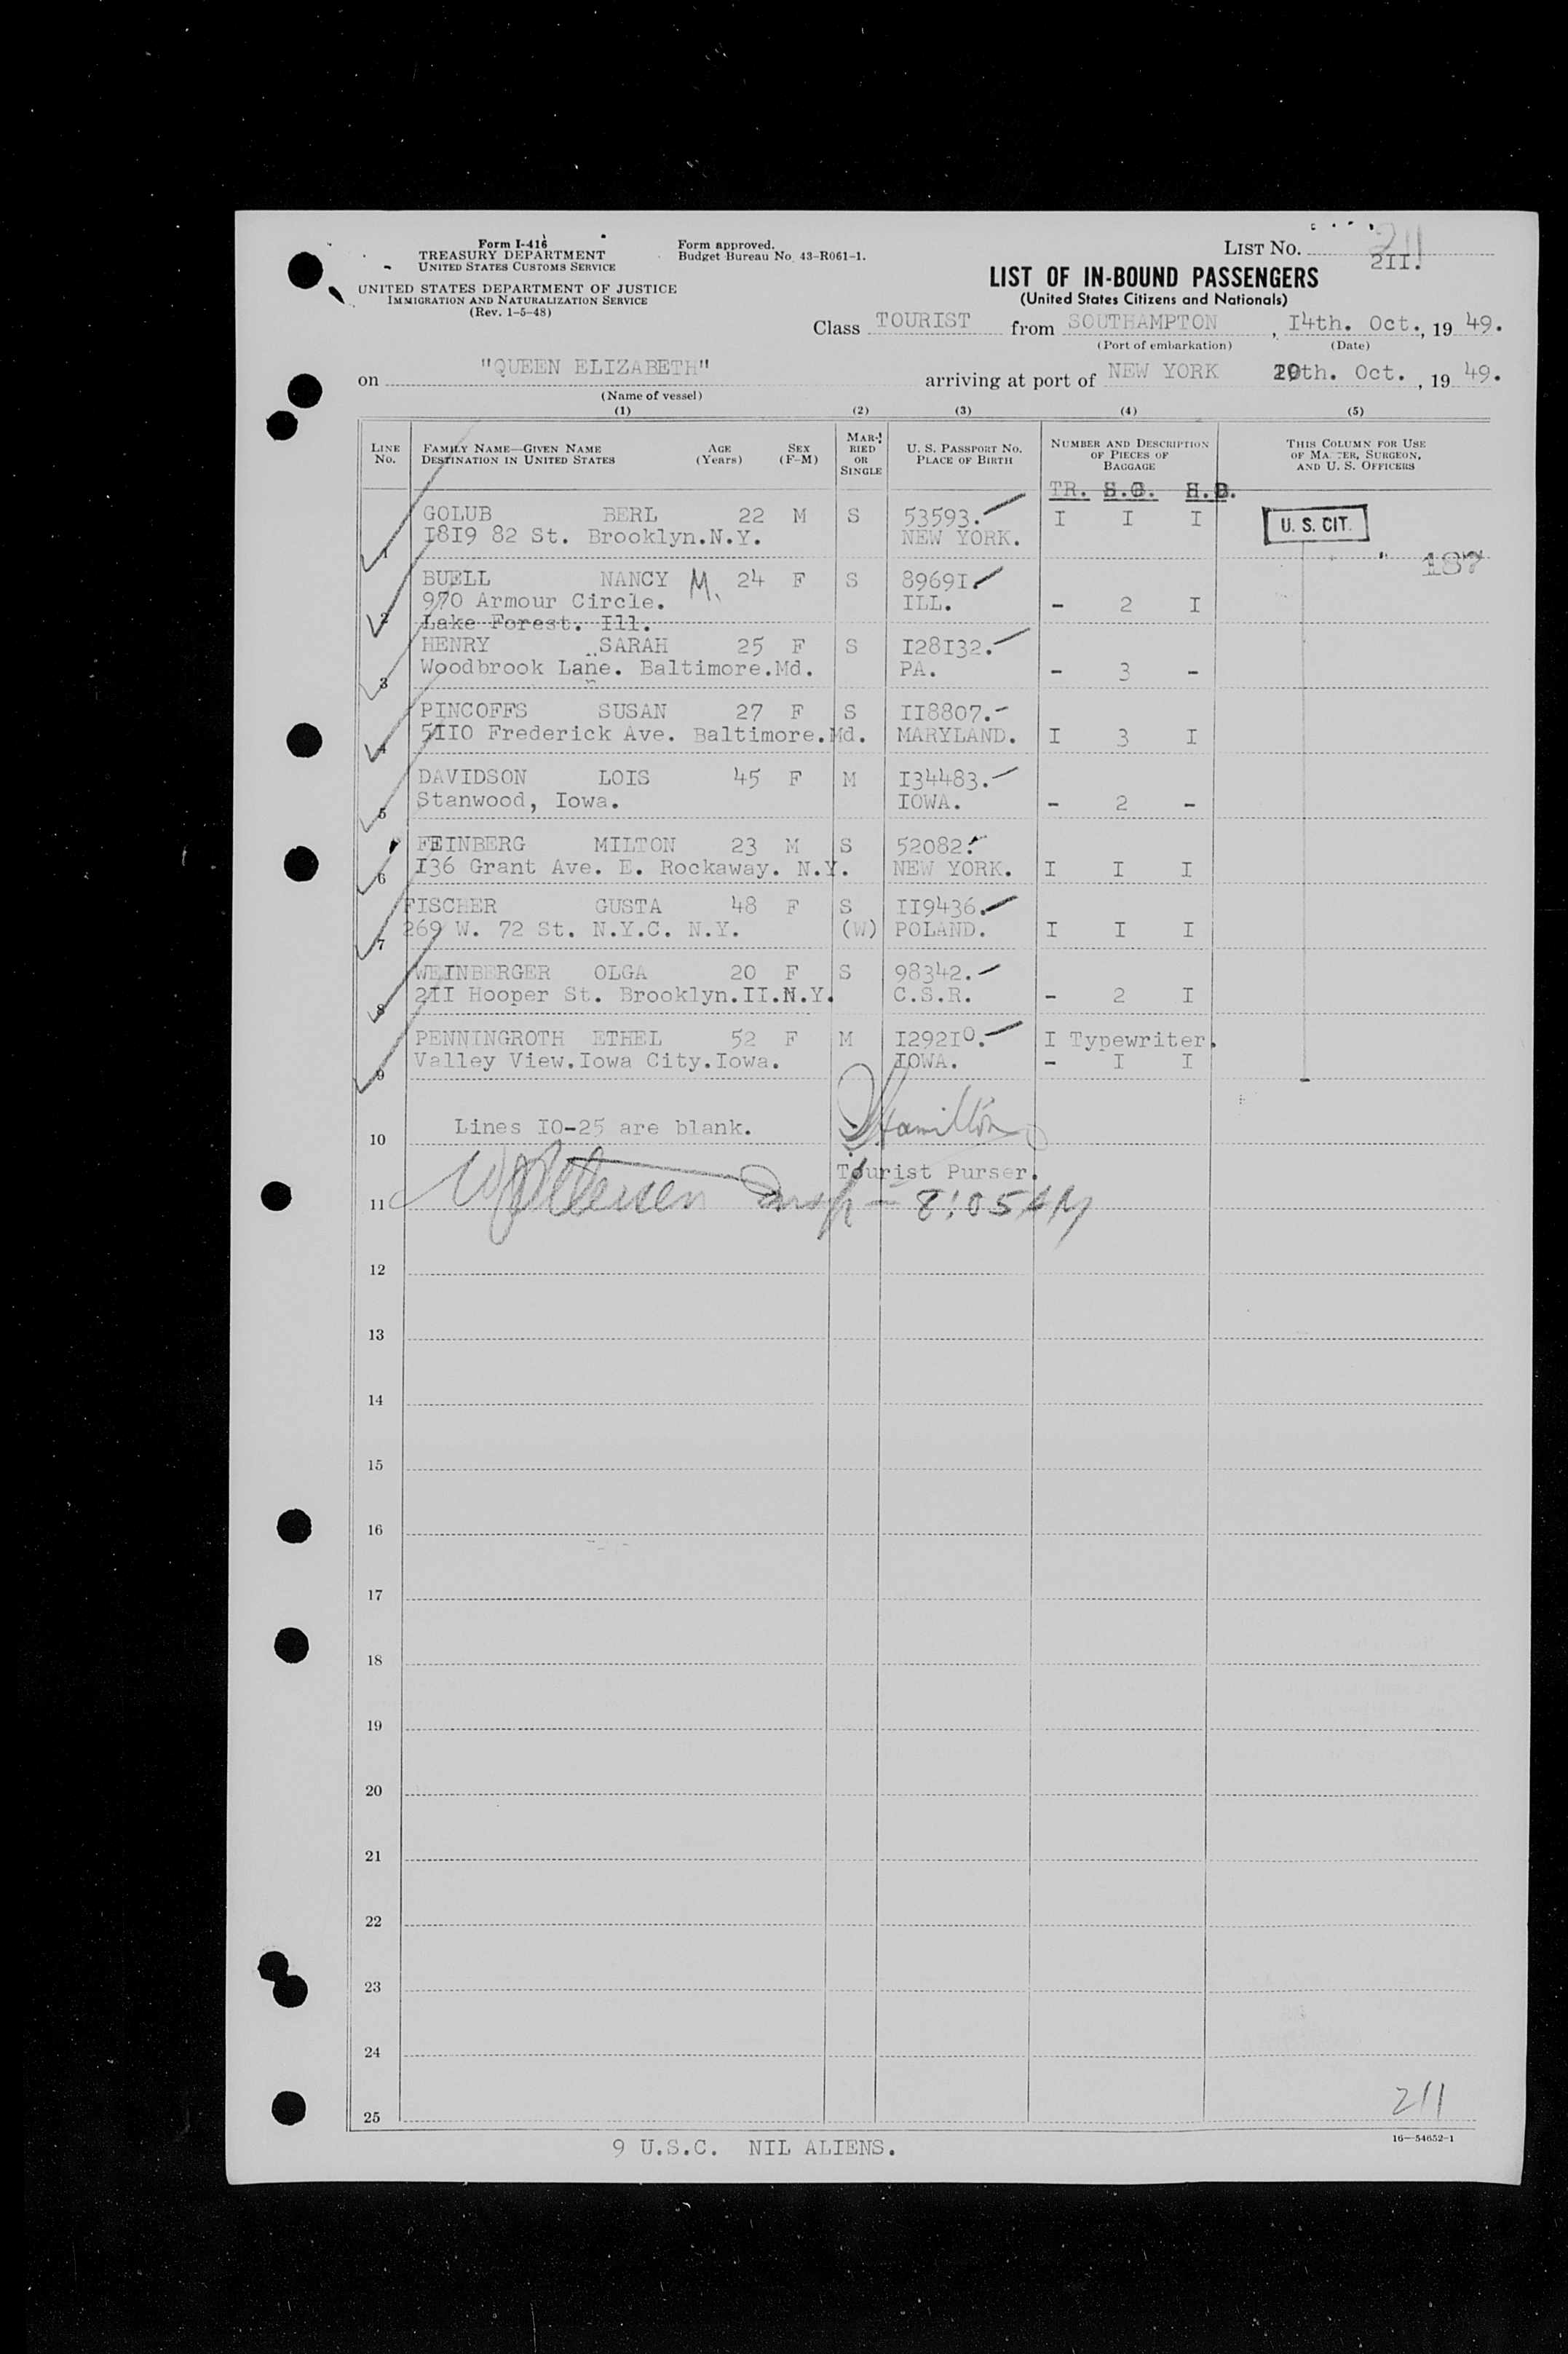 Form I-416
TREASURY DEPARTMENT
UNITED STATES CUSTOMS SERVICE
UNITED STATES DEPARTMENT OF JUSTICE
IMMIGRATION AND NATURALIZATION SERVICE
(Rev. 1-5-48)
Form approved.
Budget Bureau No. 43-R061-1.
LIST NO. 211
2II.
LIST OF IN-BOUND PASSENGERS
(United States Citizens and Nationals)
Class TOURIST from SOUTHAMPTON, I4th. Oct., 19 49.
(Port of embarkation) (Date)
on "QUEEN ELIZABETH" arriving at port of NEW YORK th. Oct., 19 49.
(Name of vessel)
(1) (2) (3) (4) (5)
LINE No. FAMILY NAME—GIVEN NAME DESTINATION IN UNITED STATES AGE (Years) SEX (F-M) MARRIED OR SINGLE U. S. PASSPORT NO. PLACE OF BIRTH NUMBER AND DESCRIPTION OF PIECES OF BAGGAGE THIS COLUMN FOR USE OF MASTER, SURGEON, AND U. S. OFFICERS
TR.
1 GOLUB BERL 22 M S 53593. I I I U. S. CIT.
I8I9 82 St. Brooklyn.N.Y. NEW YORK.
187
2 BUELL NANCY M. 24 F S 8969I
970 Armour Circle. ILL. - 2 I
Lake Forest. Ill.
3 HENRY SARAH 25 F S I28I32.
Woodbrook Lane. Baltimore.Md. PA. - 3 -
4 PINCOFFS SUSAN 27 F S II8807.
5II0 Frederick Ave. Baltimore.Md. MARYLAND. I 3 I
5 DAVIDSON LOIS 45 F M I34483.
Stanwood, Iowa. IOWA. - 2 -
6 FEINBERG MILTON 23 M S 52082.
I36 Grant Ave. E. Rockaway. N.Y. NEW YORK. I I I
7 FISCHER GUSTA 48 F S II9436.
269 W. 72 St. N.Y.C. N.Y. (W) POLAND. I I I
8 WEINBERGER OLGA 20 F S 98342.
2II Hooper St. Brooklyn.II.N.Y. C.S.R. - 2 I
9 PENNINGROTH ETHEL 52 F M I292I0. I Typewriter.
Valley View.Iowa City.Iowa. IOWA. - I I
10 Lines IO-25 are blank. Hamilton
Tourist Purser.
11 Insp - 8:05 AM
12
13
14
15
16
17
18
19
20
21
22
23
24
211
25
16-54652-1
9 U.S.C. NIL ALIENS.